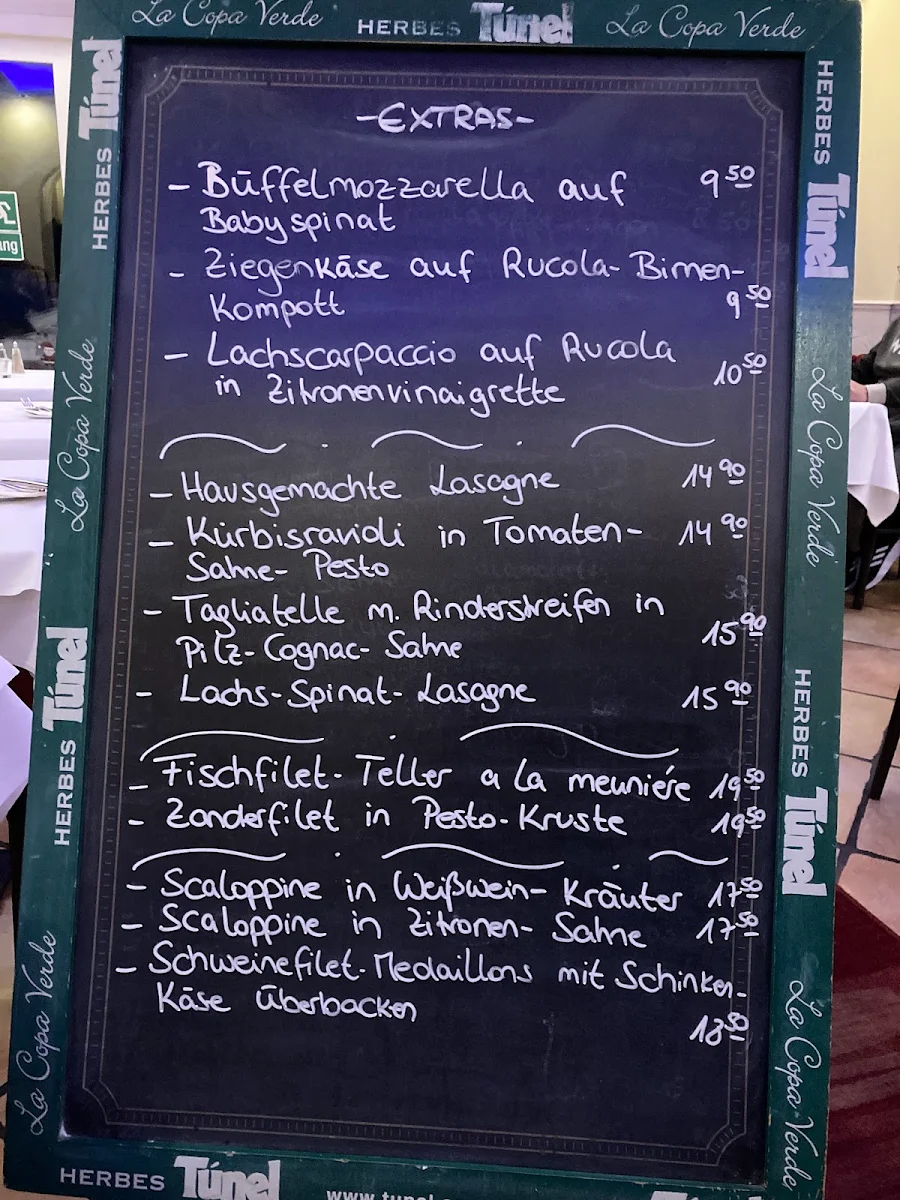 La Copa Verde HERBES Túnel La Copa Verde
-EXTRAS-
- Büffelmozzarella auf 9 50
Babyspinat
- Ziegenkäse auf Rucola-Birnen-
Kompott 9 50
- Lachscarpaccio auf Rucola
in Zitronenvinaigrette 10 50
- Hausgemachte Lasagne 14 90
- Kürbisravioli in Tomaten- 14 90
Sahne- Pesto
- Tagliatelle m. Rinderstreifen in
Pilz-Cognac-Sahne 15 90
- Lachs-Spinat-Lasagne 15 90
- Fischfilet-Teller a la meuniére 19 50
- Zanderfilet in Pesto-Kruste 19 50
- Scaloppine in Weißwein-Kräuter 17 50
- Scaloppine in Zitronen-Sahne 17 50
- Schweinefilet-Medaillons mit Schinken-
Käse überbacken
18 50
HERBES Túnel
La Copa Verde
HERBES Túnel
La Copa Verde
HERBES Túnel
La Copa Verde
HERBES Túnel
La Copa Verde
HERBES Túnel